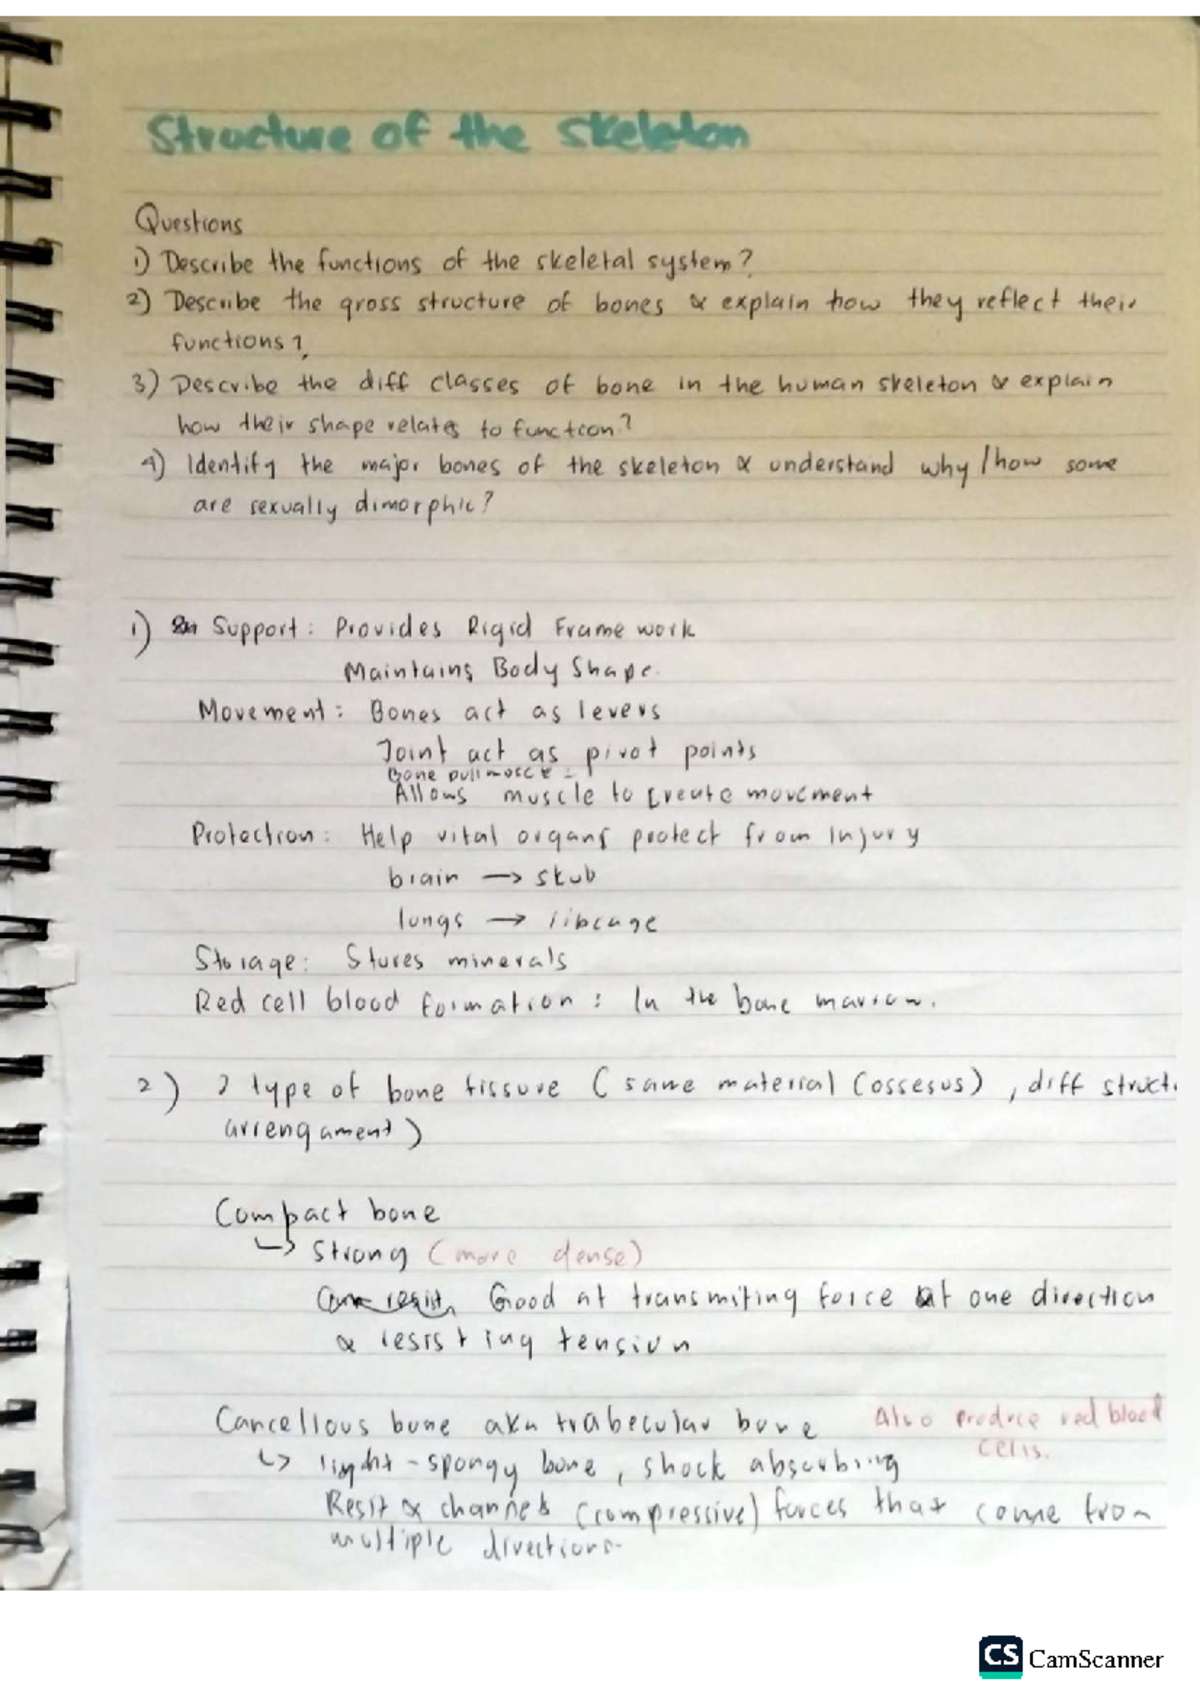 Structure of the skeleton
Questions
1) Describe the functions of the skeletal system?
2) Describe the gross structure of bones & explain how they reflect their
functions?
3) Describe the diff classes of bone in the human skeleton & explain
how their shape relates to function?
4) Identify the major bones of the skeleton & understand why/how some
are sexually dimorphic?
1) Support: Provides Rigid Frame work
Maintains Body Shape.
Movement: Bones act as levers
Joint act as pivot points
Bone pull
Allows muscle to create movement
Protection: Help vital organs protect from injury
brain → skull
lungs → ribcage
Storage: Stores minerals
Red cell blood formation: In the bone marrow.
2) 2 type of bone tissure (same material (ossesus), diff struct.
arrengament)
Compact bone
↳ Strong (more dense)
Good at transmiting force at one direction
& resisting tension
Cancellous bone aka trabecular bone Also produce red blood
cells.
↳ light-spongy bone, shock absorbing
Resist & channels (compressive) forces that come from
multiple directions.
CS CamScanner